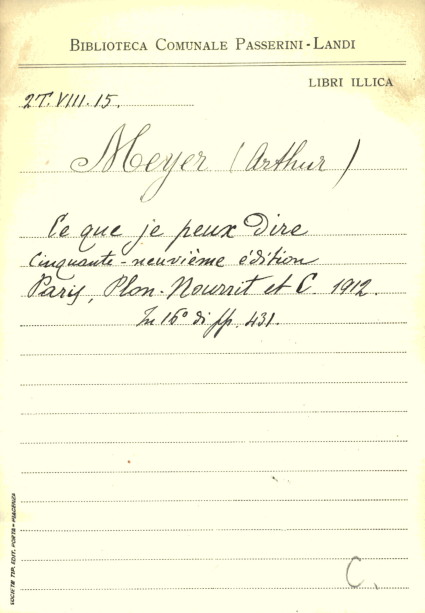 BIBLIOTECA COMUNALE PASSERINI-LANDI
LIBRI ILLICA
2T.VIII.15.
Meyer (Arthur)
Ce que je peux dire
Cinquante-neuvième édition
Paris, Plon-Nourrit et C. 1912.
In 16° di pp. 431.
C.
SOCIETÀ TIP. EDIT. PORTA - PIACENZA